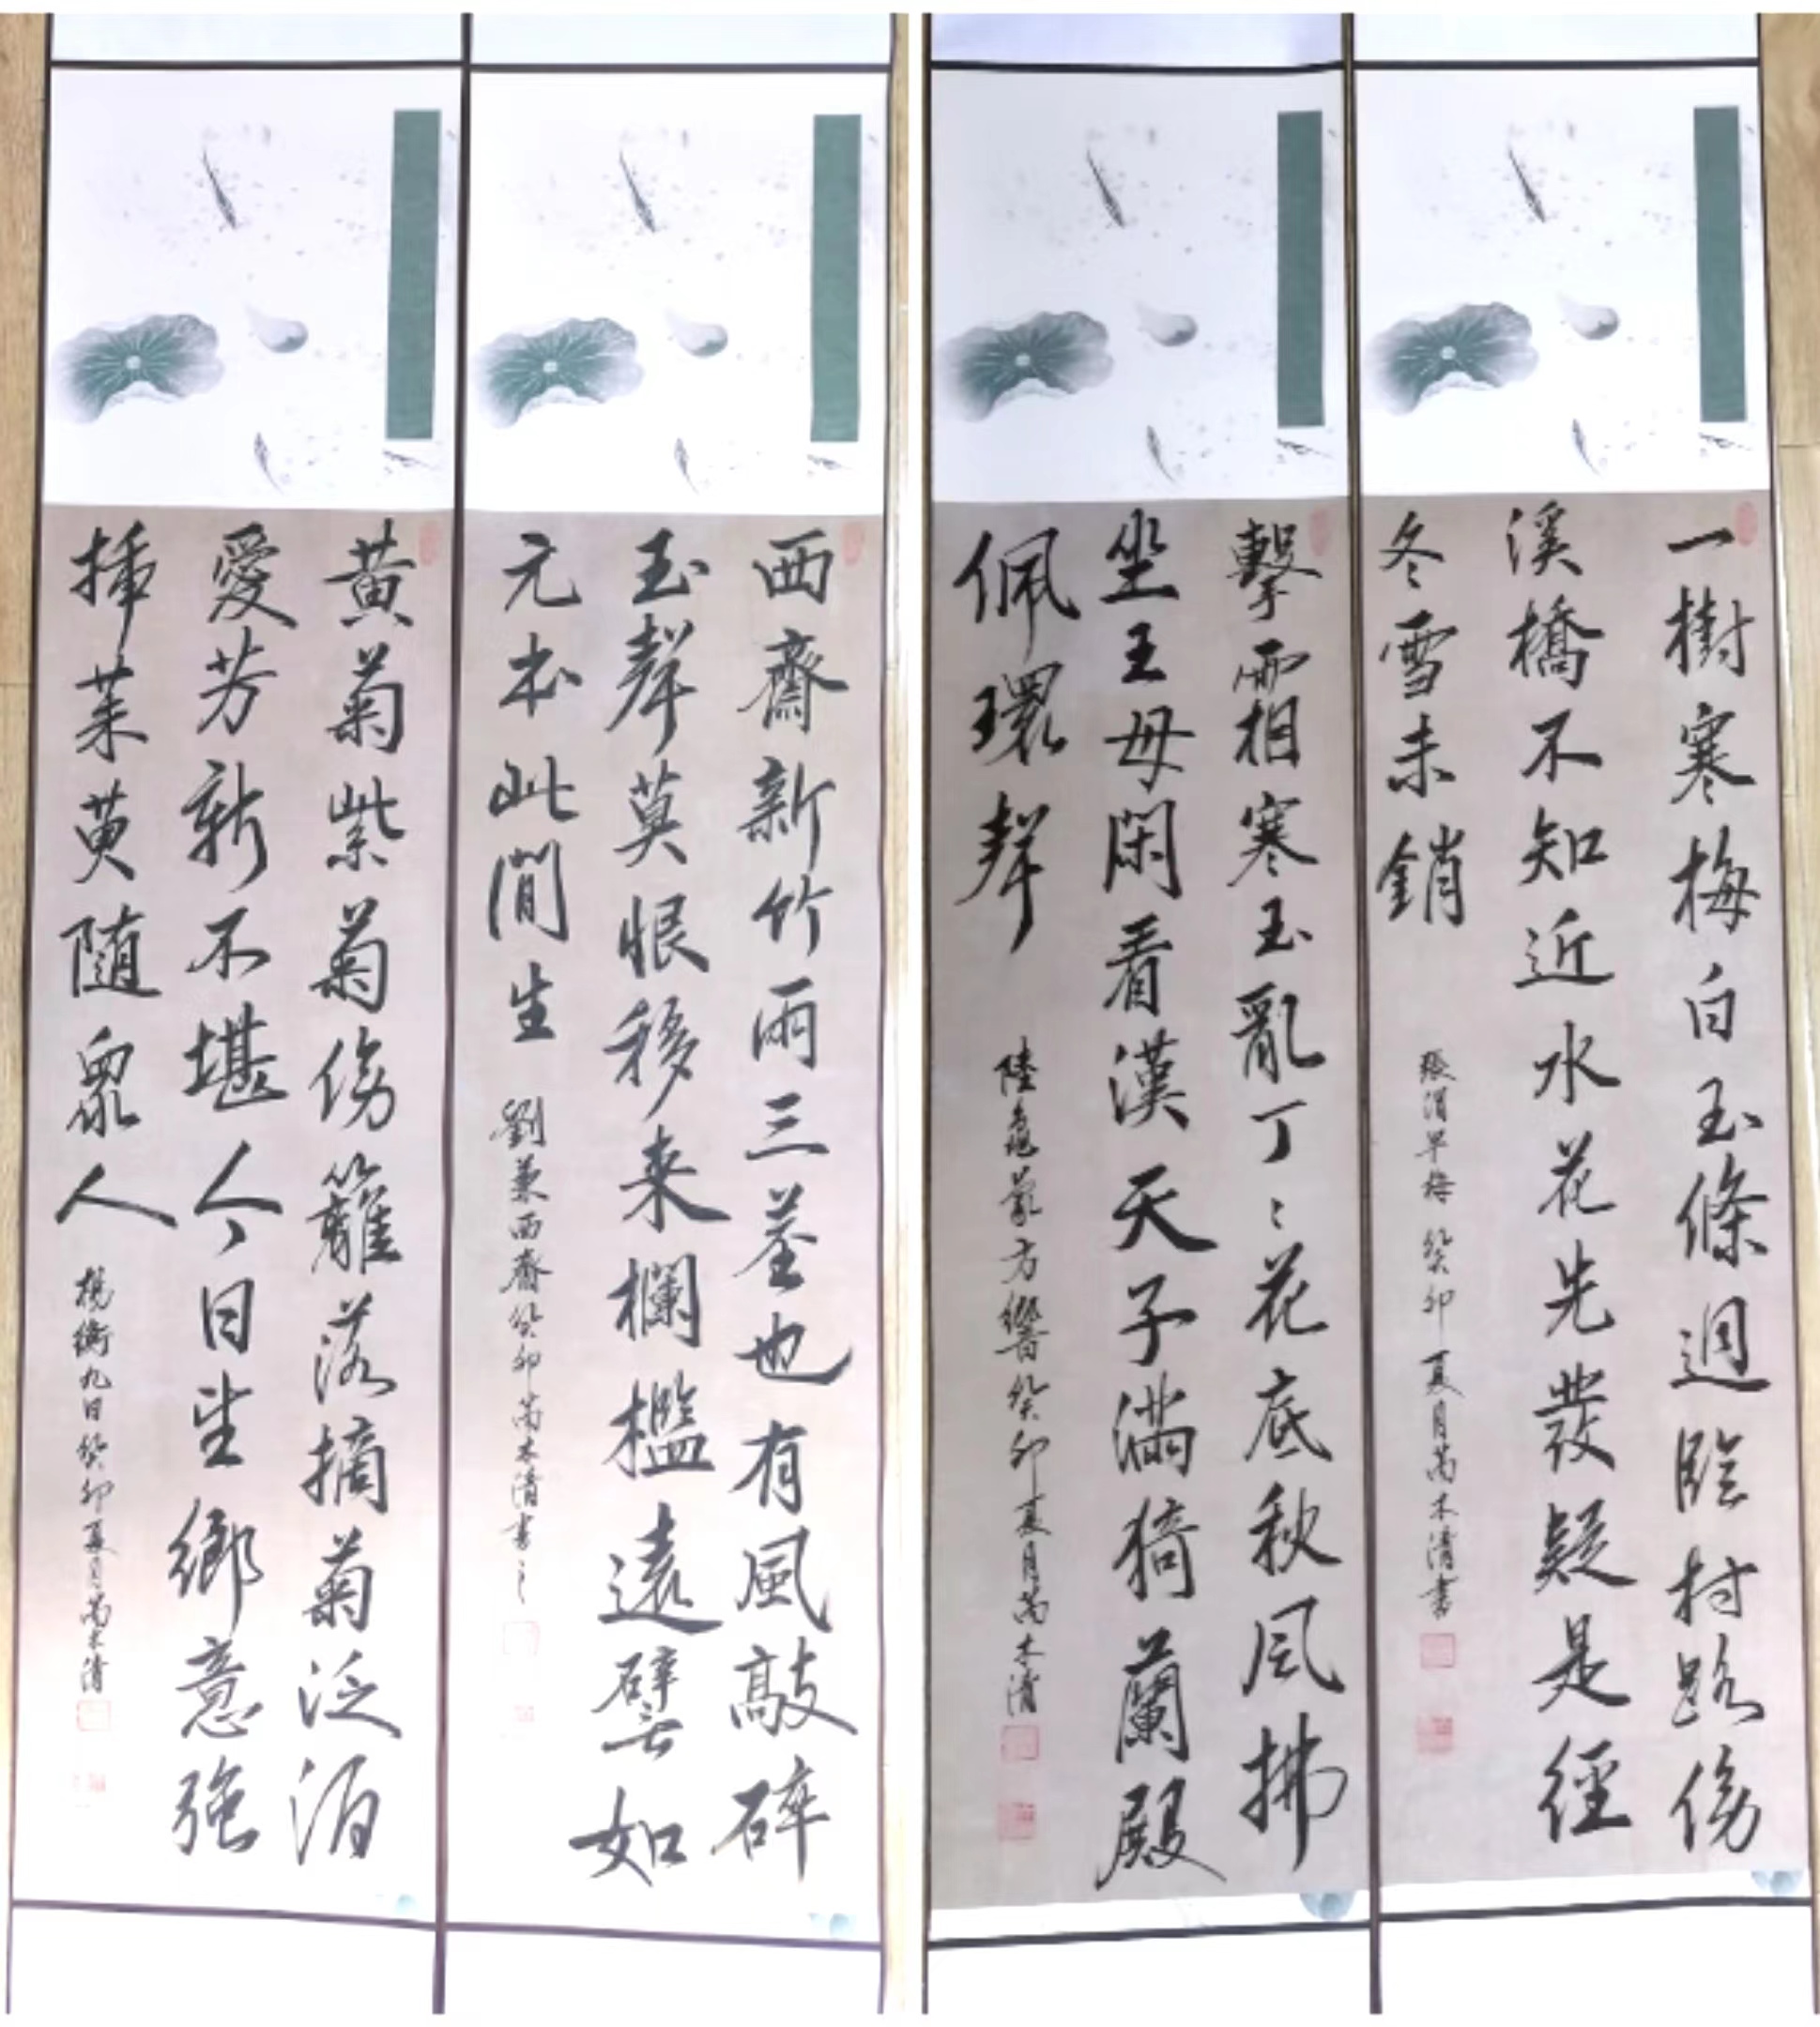 一樹寒梅白玉條迥臨村路傍
溪橋不知近水花先發疑是經
冬雪未銷
張渭早梅 癸卯夏月芮木清書
擊霜寒玉亂丁〻花底秋風拂
坐王母閑看漢天子滿猗蘭殿
佩環聲
陸龜蒙方響癸卯夏月芮木清
西齋新竹兩三莖也有風敲碎
玉聲莫恨移来欄檻遠譬如
元本此間生
劉兼西齋癸卯芮木清書之
黄菊紫菊傍籬落摘菊泛酒
愛芳新不堪今日望鄉意強
插茱萸随衆人
楊衡九日癸卯夏月芮木清